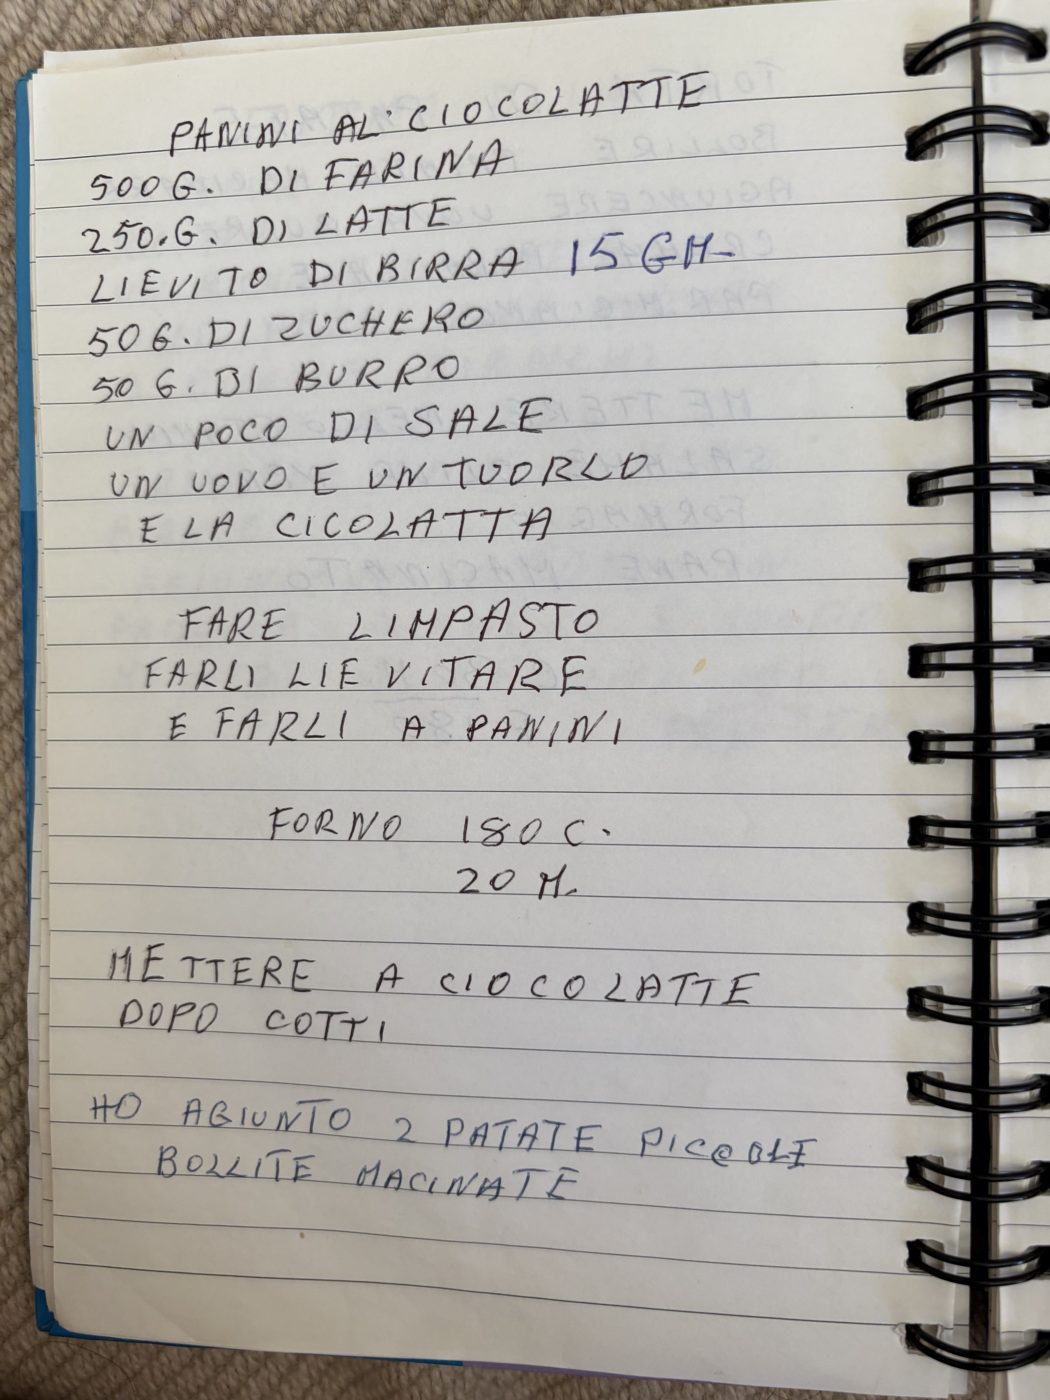 PANINI AL CIOCOLATTE
500G. DI FARINA
250.G. DI LATTE
LIEVITO DI BIRRA 15 GM
50G. DI ZUCHERO
50 G. DI BURRO
UN POCO DI SALE
UN UOVO E UN TUORLO
E LA CICOLATTA
FARE LIMPASTO
FARLI LIEVITARE
E FARLI A PANINI
FORNO 180 C.
20 M.
METTERE A CIOCOLATTE
DOPO COTTI
HO AGIUNTO 2 PATATE PICCOLE
BOLLITE MACINATE